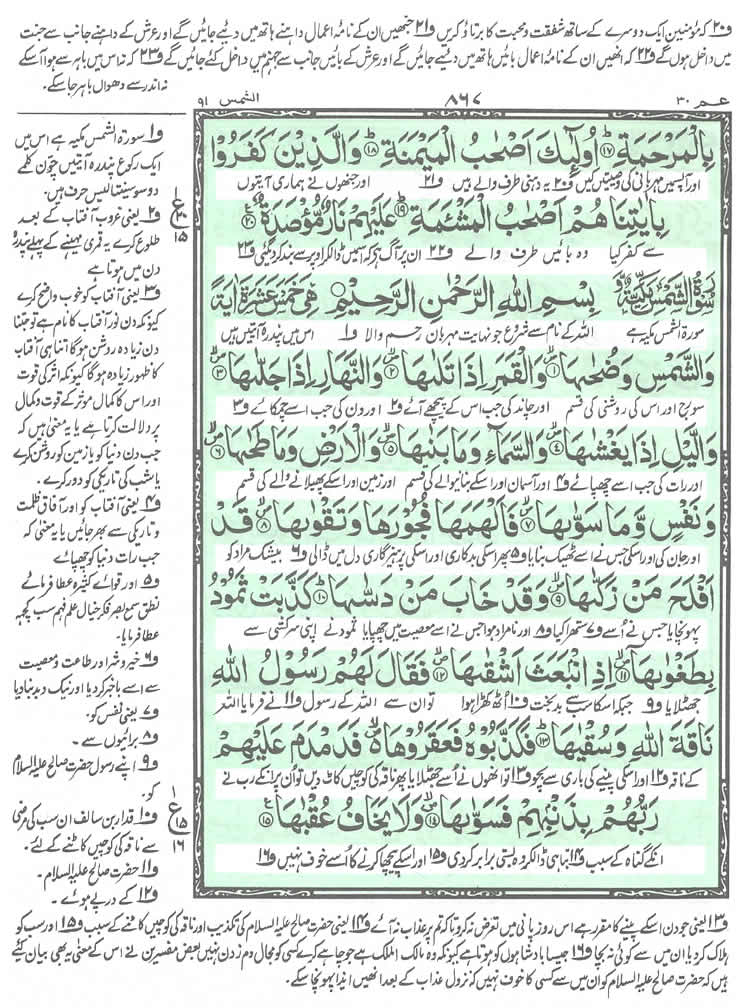 ف۲۰ کہ مؤمنین ایک دوسرے کے ساتھ شفقت و محبت کا برتاؤ کریں ف۲۱ جنھیں ان کے نامۂ اعمال داہنے ہاتھ میں دئیے جائیں گے اور عرش کے داہنے جانب سے جنت
میں داخل ہوں گے ف۲۲ کہ انھیں ان کے نامۂ اعمال بائیں ہاتھ میں دئیے جائیں گے اور عرش کے بائیں جانب سے جہنم میں داخل کئے جائیں گے ف۲۳ کہ نہ اس میں باہر سے ہوا آسکے
نہ اندر سے دھواں باہر جاسکے۔
عم ۳۰
۸۶۷
الشمس ۹۱
بِالْمَرْحَمَةِ ﴿۱۷﴾ اُولٰٓئِكَ اَصْحٰبُ الْمَيْمَنَةِ ﴿۱۸﴾ وَالَّذِيْنَ كَفَرُوْا
اور آپس میں مہربانی کی وصیتیں کیں ف۲۰ یہ دہنی طرف والے ہیں ف۲۱ اور جنھوں نے ہماری آیتوں
بِاٰيٰتِنَا هُمْ اَصْحٰبُ الْمَشْئَمَةِ ﴿۱۹﴾ عَلَيْهِمْ نَارٌ مُّؤْصَدَةٌ ﴿۲۰﴾
سے کفر کیا وہ بائیں طرف والے ف۲۲ ان پر آگ ہے کہ اس میں ڈال کر اوپر سے بند کر دی گئی ف۲۳
سُوْرَةُ الشَّمْسِ مَكِّيَّةٌ بِسْمِ اللهِ الرَّحْمٰنِ الرَّحِيْمِ هِيَ خَمْسَ عَشَرَةَ اٰيَةً
سورۃ الشمس مکیہ ہے اللہ کے نام سے شروع جو نہایت مہربان رحم والا ف۱ اس میں پندرہ آیتیں ہیں
وَالشَّمْسِ وَضُحٰىهَا ﴿۱﴾ وَالْقَمَرِ اِذَا تَلٰىهَا ﴿۲﴾ وَالنَّهَارِ اِذَا جَلّٰىهَا ﴿۳﴾
سورج اور اس کی روشنی کی قسم اور چاند کی جب اس کے پیچھے آئے ف۲ اور دن کی جب اسے چمکائے ف۳
وَالَّيْلِ اِذَا يَغْشٰىهَا ﴿۴﴾ وَالسَّمَآءِ وَمَا بَنٰىهَا ﴿۵﴾ وَالْاَرْضِ وَمَا طَحٰىهَا ﴿۶﴾
اور رات کی جب اسے چھپائے ف۴ اور آسمان اور اسکے بنانیوالے کی قسم اور زمین اور اسکے پھیلانے والے کی قسم
وَنَفْسٍ وَّمَا سَوّٰىهَا ﴿۷﴾ فَاَلْهَمَهَا فُجُوْرَهَا وَتَقْوٰىهَا ﴿۸﴾ قَدْ
اور جان کی اور اسکی جس نے اسے ٹھیک بنایا ف۵ پھر اسکی بدکاری اور اسکی پرہیزگاری دل میں ڈالی ف۶ بیشک مراد کو
اَفْلَحَ مَنْ زَكّٰىهَا ﴿۹﴾ وَقَدْ خَابَ مَنْ دَسّٰىهَا ﴿۱۰﴾ كَذَّبَتْ ثَمُوْدُ
پہونچایا جس نے اُسے ف۷ ستھرا کیا ف۸ اور نامراد ہوا جس نے اسے معصیت میں چھپایا ثمود نے اپنی سرکشی سے
بِطَغْوٰىهَا ﴿۱۱﴾ اِذِ انْۢبَعَثَ اَشْقٰىهَا ﴿۱۲﴾ فَقَالَ لَهُمْ رَسُوْلُ اللهِ
جھٹلایا ف۹ جبکہ اسکا سب سے بدبخت ف۱۰ اُٹھ کھڑا ہوا تو ان سے اللہ کے رسول ف۱۱ نے فرمایا اللہ
نَاقَةَ اللهِ وَسُقْيٰهَا ﴿۱۳﴾ فَكَذَّبُوْهُ فَعَقَرُوْهَا فَدَمْدَمَ عَلَيْهِمْ
کے ناقہ ف۱۲ اور اسکی پینے کی باری سے بچو ف۱۳ تو انھوں نے اُسے جھٹلایا پھر ناقہ کی کوچیں کاٹ دیں تو اُن پر انکے رب نے
رَبُّهُمْ بِذَنْۢبِهِمْ فَسَوّٰىهَا ﴿۱۴﴾ وَلَا يَخَافُ عُقْبٰهَا ﴿۱۵﴾
انکے گناہ کے سبب ف۱۴ تباہی ڈال کر وہ بستی برابر کردی ف۱۵ اور اسکے پیچھا کرنے کا اُسے خوف نہیں ف۱۶
ف۱ سورۃ الشمس مکیہ ہے اس میں
ایک رکوع پندرہ آیتیں چوّن کلمے
دو سو سینتالیس حرف ہیں۔
ف۲ یعنی غروبِ آفتاب کے بعد
طلوع کرے یہ قمری مہینے کے پہلے پندرہ
دن میں ہوتا ہے
ف۳ یعنی آفتاب کو خوب واضح کرے
کیونکہ دن نورِ آفتاب کا نام ہے تو جتنا
دن زیادہ روشن ہوگا اتنا ہی آفتاب
کا ظہور زیادہ ہوگا کیونکہ اثر کی قوت
اور اس کا کمال مؤثر کے قوت و کمال
پر دلالت کرتا ہے یا یہ معنی ہیں کہ
جب دن دنیا کو یا زمین کو روشن کرے
یا شب کی تاریکی کو دور کرے۔
ف۴ یعنی آفتاب کو اور آفاق ظلمت
و تاریکی سے بھر جائیں یا یہ معنی کہ
جب رات دنیا کو چھپائے
ف۵ اور قوائے کثیرہ عطا فرمائے
نطق سمع بصر فکر خیال علم فہم سب کچھ
عطا فرمایا۔
ف۶ خیر و شر اور طاعت و معصیت
سے اسے باخبر کردیا اور نیک و بد بتا دیا
ف۷ یعنی نفس کو۔
ف۸ برائیوں سے۔
ف۹ اپنے رسول حضرت صالح علیہ السلام
کو۔
ف۱۰ قدار بن سالف ان سب کی مرضی
سے ناقہ کی کوچیں کاٹنے کے لئے۔
ف۱۱ حضرت صالح علیہ السلام۔
ف۱۲ کے درپے ہونے۔
ع ۲۰ ۱۵
ع ۱ ۱۵ ۱۶
ف۱۳ یعنی جو دن اسکے پینے کا مقرر ہے اس روز پانی میں تعرض نہ کرو تاکہ تم پر عذاب نہ آئے ف۱۴ یعنی حضرت صالح علیہ السلام کی تکذیب اور ناقہ کی کوچیں کاٹنے کے سبب ف۱۵ اور سب کو
ہلاک کردیا ان میں سے کوئی نہ بچا ف۱۶ جیسا بادشاہوں کو ہوتا ہے کیونکہ وہ مالک الملک ہے جو چاہے کرے کسی کو مجال دم زدن نہیں بعض مفسرین نے اس کے معنی یہ بھی بیان کئے
ہیں کہ حضرت صالح علیہ السلام کو ان میں سے کسی کا خوف نہیں کہ نزول عذاب کے بعد انھیں ایذا پہونچا سکے۔